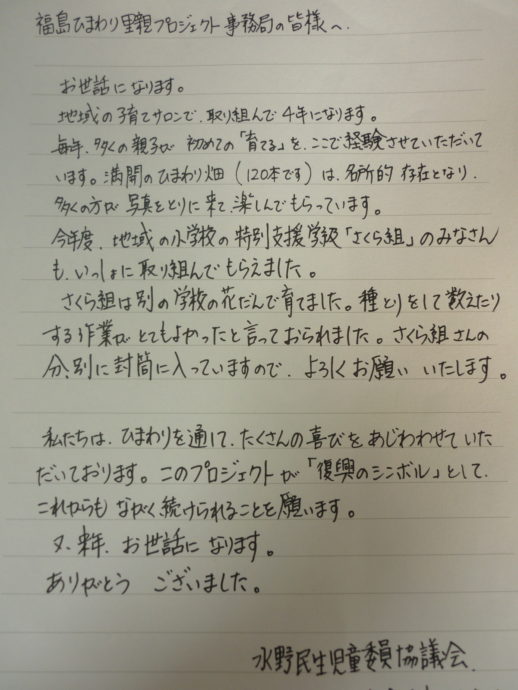 福島ひまわり里親プロジェクト事務局の皆様へ.
お世話になります。
地域の子育てサロンで、取り組んで4年になります。
毎年、多くの親子が初めての「育てる」を、ここで経験させていただいて
います。満開のひまわり畑(120本です)は、名所的存在となり、
多くの方が写真をとりに来て、楽しんでもらっています。
今年度、地域の小学校の特別支援学級「さくら組」のみなさん
も、いっしょに取り組んでもらえました。
さくら組は別の学校の花だんで育てました。種とりをして数えたり
する作業がとてもよかったと言っておられました。さくら組さんの
分、別に封筒に入っていますので、よろしくお願いいたします。
私たちは、ひまわりを通して、たくさんの喜びをあじわわせていた
だいております。このプロジェクトが「復興のシンボル」として、
これからもながく続けられることを願います。
又、来年、お世話になります。
ありがとう ございました。
水野民生児童委員協議会.